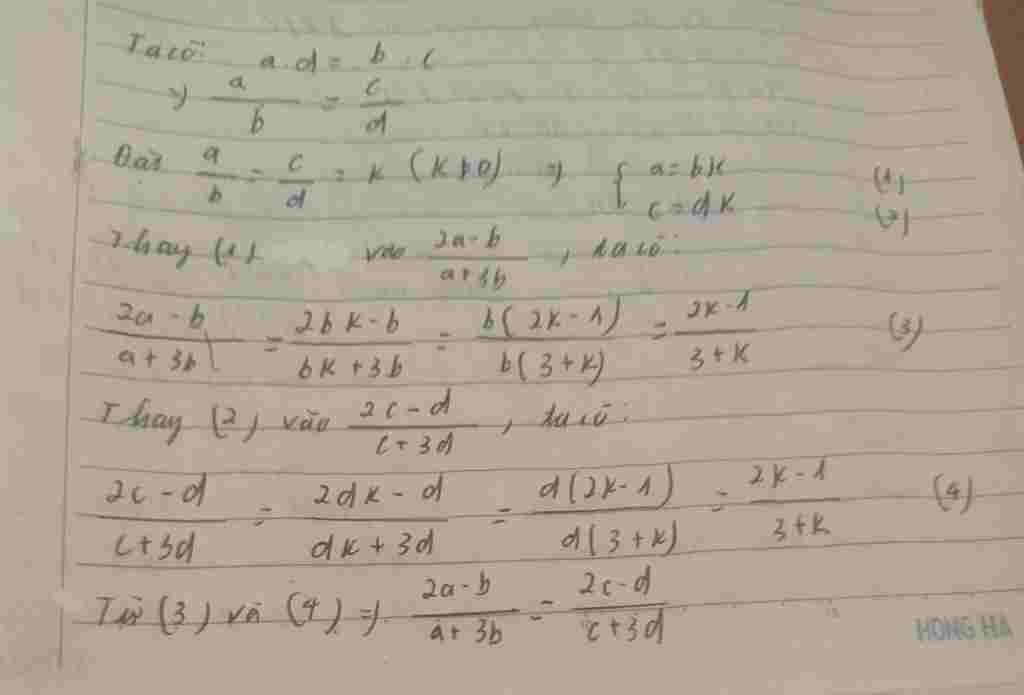 Ta có: a.d = b.c
=> a/b = c/d
Đặt a/b = c/d = k (k≠0) => { a = bk (1)
c = dk (2)
Thay (1) vào 2a-b/a+3b, ta có:
2a-b/a+3b = 2bk-b/bk+3b = b(2k-1)/b(3+k) = 2k-1/3+k (3)
Thay (2) vào 2c-d/c+3d, ta có:
2c-d/c+3d = 2dk-d/dk+3d = d(2k-1)/d(3+k) = 2k-1/3+k (4)
Từ (3) và (4) => 2a-b/a+3b = 2c-d/c+3d
HONG HA